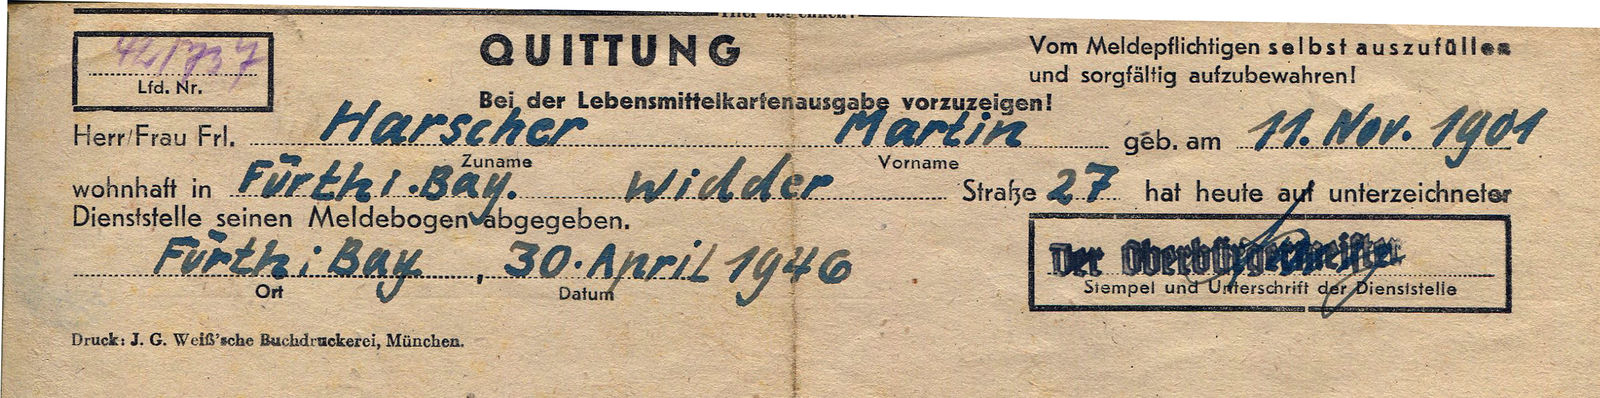 Hier abtrennen!
QUITTUNG
Vom Meldepflichtigen selbst auszufüllen
und sorgfältig aufzubewahren!
Lfd. Nr.
Bei der Lebensmittelkartenausgabe vorzuzeigen!
Herr/Frau Frl. Harscher Martin geb. am 11. Nov. 1901
Zuname Vorname
wohnhaft in Fürth i. Bay. Widder Straße 27 hat heute auf unterzeichneter
Dienststelle seinen Meldebogen abgegeben.
Fürth i Bay., 30. April 1946
Der Oberbürgermeister
Ort Datum
Stempel und Unterschrift der Dienststelle
Druck: J. G. Weiß'sche Buchdruckerei, München.